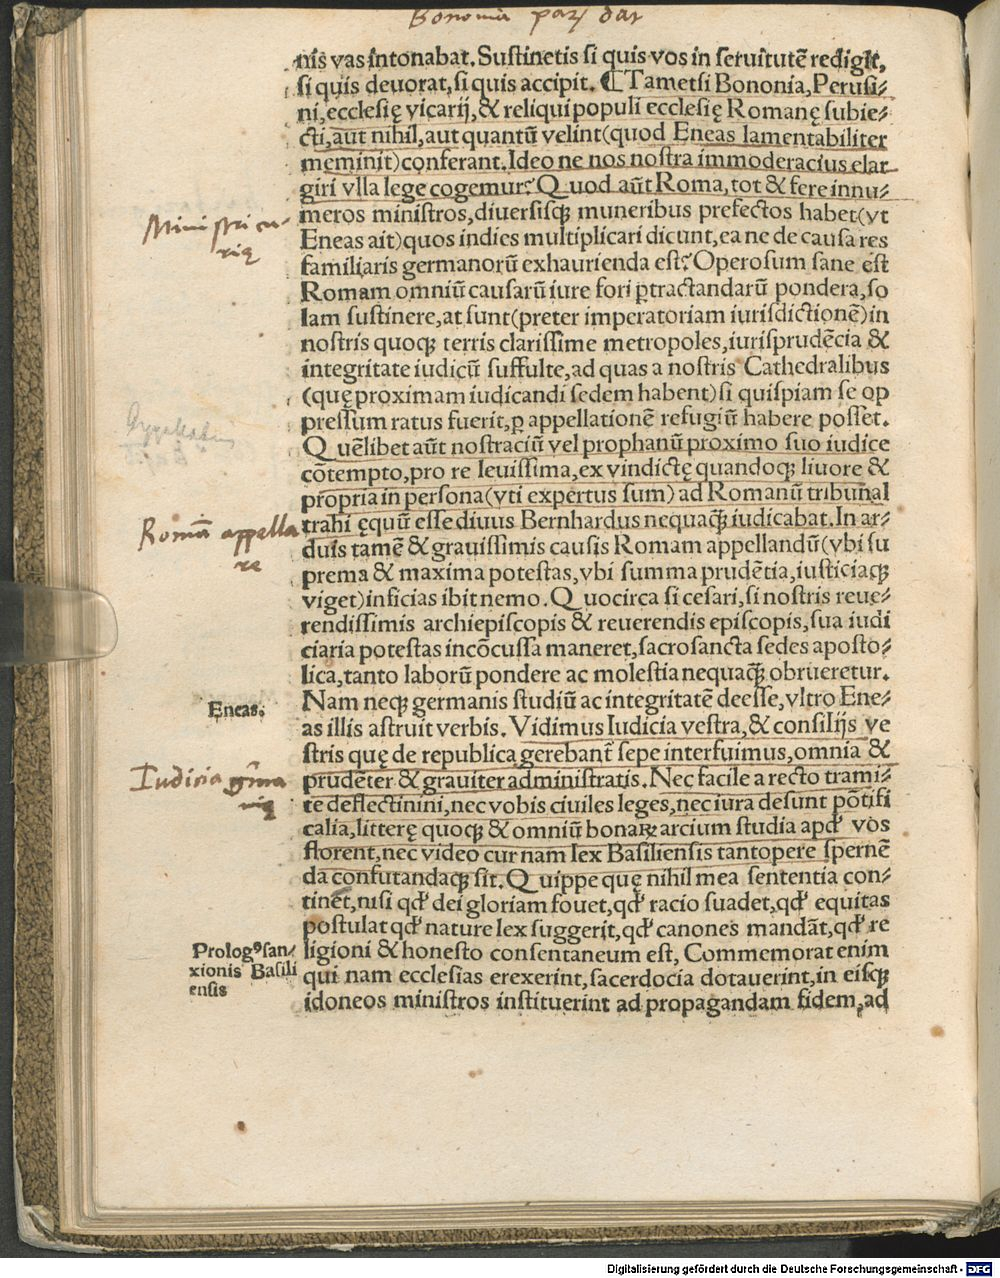 Bononia paꝝ dat
nis vas intonabat. Sustinetis si quis vos in seruitutē redigit,
si quis deuorat, si quis accipit. ⸿ Tametsi Bononia, Perusi⸗
ni, ecclesię vicarij, & reliqui populi ecclesię Romanę subie⸗
cti, aut nihil, aut quantū velint (quod Eneas lamentabiliter
meminit) conferant. Ideo ne nos nostra immoderacius elar
giri vlla lege cogemur? Quod aūt Roma, tot & fere innu⸗
Ministri cu⸗
rię
meros ministros, diuersisqꝫ muneribus prefectos habet (vt
Eneas ait) quos indies multiplicari dicunt, ea ne de causa res
familiaris germanorū exhaurienda est? Operosum sane est
Romam omniū causarū iure fori ꝑtractandarū pondera, so
lam sustinere, at sunt (preter imperatoriam iurisdictionē) in
nostris quoqꝫ terris clarissime metropoles, iurisprudēcia &
integritate iudicū suffulte, ad quas a nostris Cathedralibus
(quę proximam iudicandi sedem habent) si quispiam se op
pressum ratus fuerit, ꝑ appellationē refugiū habere posset.
Quēlibet aūt nostraciū vel prophanū proximo suo iudice
cōtempto, pro re leuissima, ex vindictę quandoqꝫ liuore &
propria in persona (vti expertus sum) ad Romanū tribunal
Romā appella
re
trahi ęquū esse diuus Bernhardus nequaqꝫ̄ iudicabat. In ar⸗
duis tamē & grauissimis causis Romam appellandū (vbi su
prema & maxima potestas, vbi summa prudētia, iusticiaqꝫ
viget) inficias ibit nemo. Quocirca si cesari, si nostris reue⸗
rendissimis archiepiscopis & reuerendis episcopis, sua iudi
ciaria potestas incōcussa maneret, sacrosancta sedes aposto⸗
lica, tanto laborū pondere ac molestia nequaqꝫ̄ obrueretur.
Nam neqꝫ germanis studiū ac integritatē deesse, vltro Ene⸗
Eneas.
as illis astruit verbis. Vidimus Iudicia vestra, & consilijs ve
stris quę de republica gerebant̄ sepe interfuimus, omnia &
Iudicia g̅ma
nię
prudēter & grauiter administratis. Nec facile a recto trami⸗
te deflectinini, nec vobis ciuiles leges, nec iura desunt pōtifi
calia, litterę quoqꝫ & omniū bonaꝝ arcium studia apđ vos
florent, nec video cur nam lex Basiliensis tantopere spernē
da confutandaqꝫ sit. Quippe quę nihil mea sententia con⸗
tinet, nisi qđ dei gloriam fouet, qđ racio suadet, qđ equitas
postulat qđ nature lex suggerit, qđ canones mandāt, qđ re
Prologꝰ san⸗
xionis Basili
ensis
ligioni & honesto consentaneum est, Commemorat enim
qui nam ecclesias erexerint, sacerdocia dotauerint, in eisqꝫ
idoneos ministros instituerint ad propagandam fidem, ad
Digitalisierung gefördert durch die Deutsche Forschungsgemeinschaft - DFG